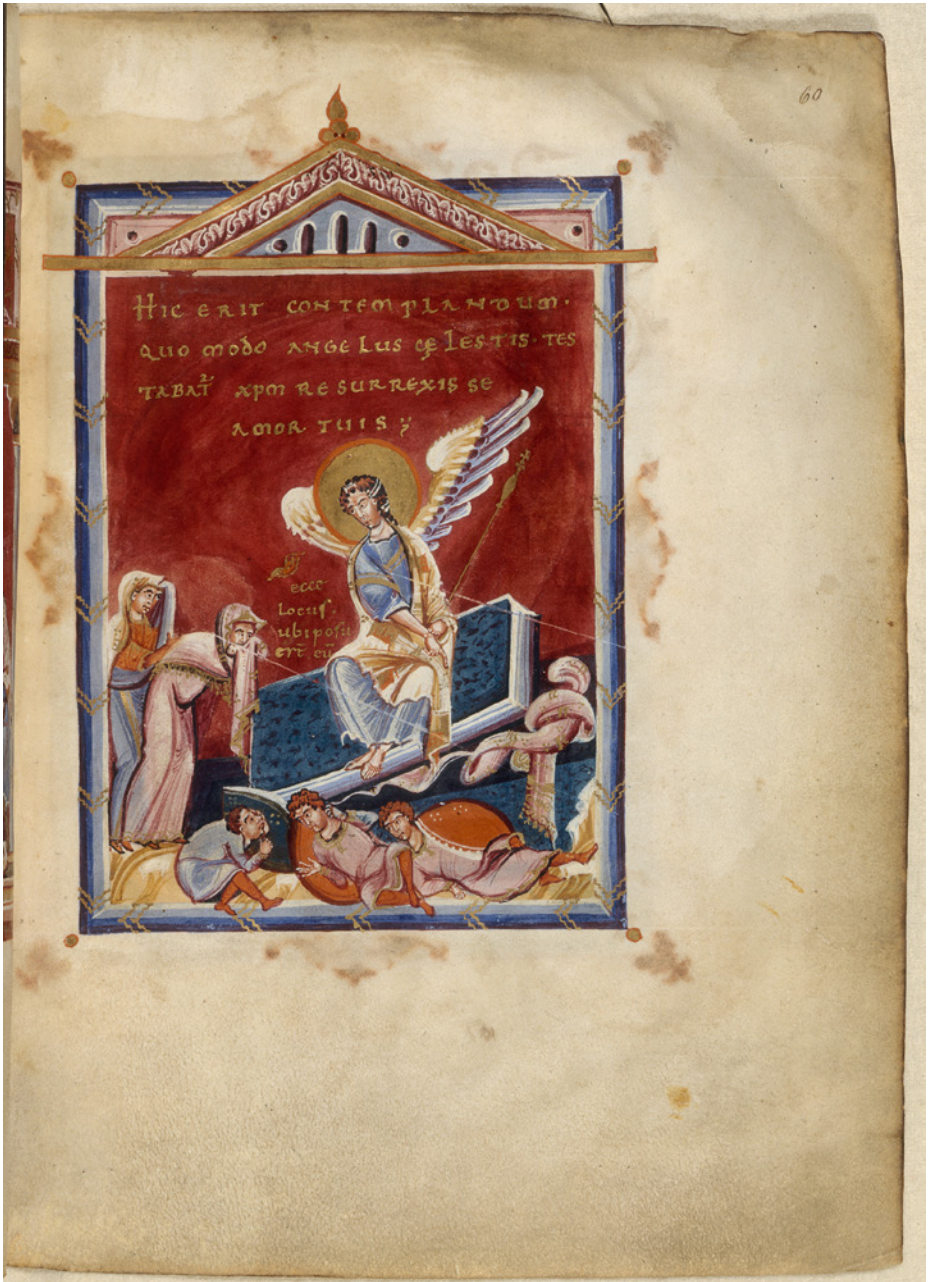 60
HIC ERIT CONTEMPLANDUM·
QUO MODO ANGELUS CĘLESTIS·TES
TABAT᷑ XPM RESURREXISSE
AMORTUIS;
ecce
Locus·
ubi posu
ert̄ eū